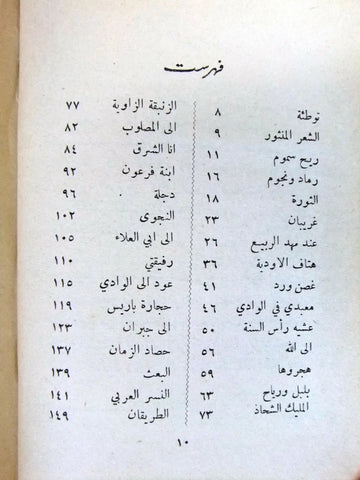 فهرست
توطئة ٨
الشعر المنثور ٩
ريح سموم ١١
رماد ونجوم ١٦
الثورة ١٨
غريبان ٢٣
عند مهد الربيع ٢٦
هتاف الاودية ٣٦
غصن ورد ٤١
معبدي في الوادي ٤٦
عشيه رأس السنة ٥٠
الى الله ٥٦
هجروها ٥٩
بلبل ورياح ٦٣
المليك الشحاذ ٧٣
الزنبقة الزاوية ٧٧
الى المصلوب ٨٢
انا الشرق ٨٤
ابنة فرعون ٩٢
دجلة ٩٦
النجوى ١٠٢
الى ابي العلاء ١٠٥
رفيقتي ١١٠
عود الى الوادي ١١٥
حجارة باريس ١١٩
الى جبران ١٢٣
حصاد الزمان ١٣٧
البعث ١٣٩
النسر العربي ١٤١
الطريقان ١٤٩
١٠